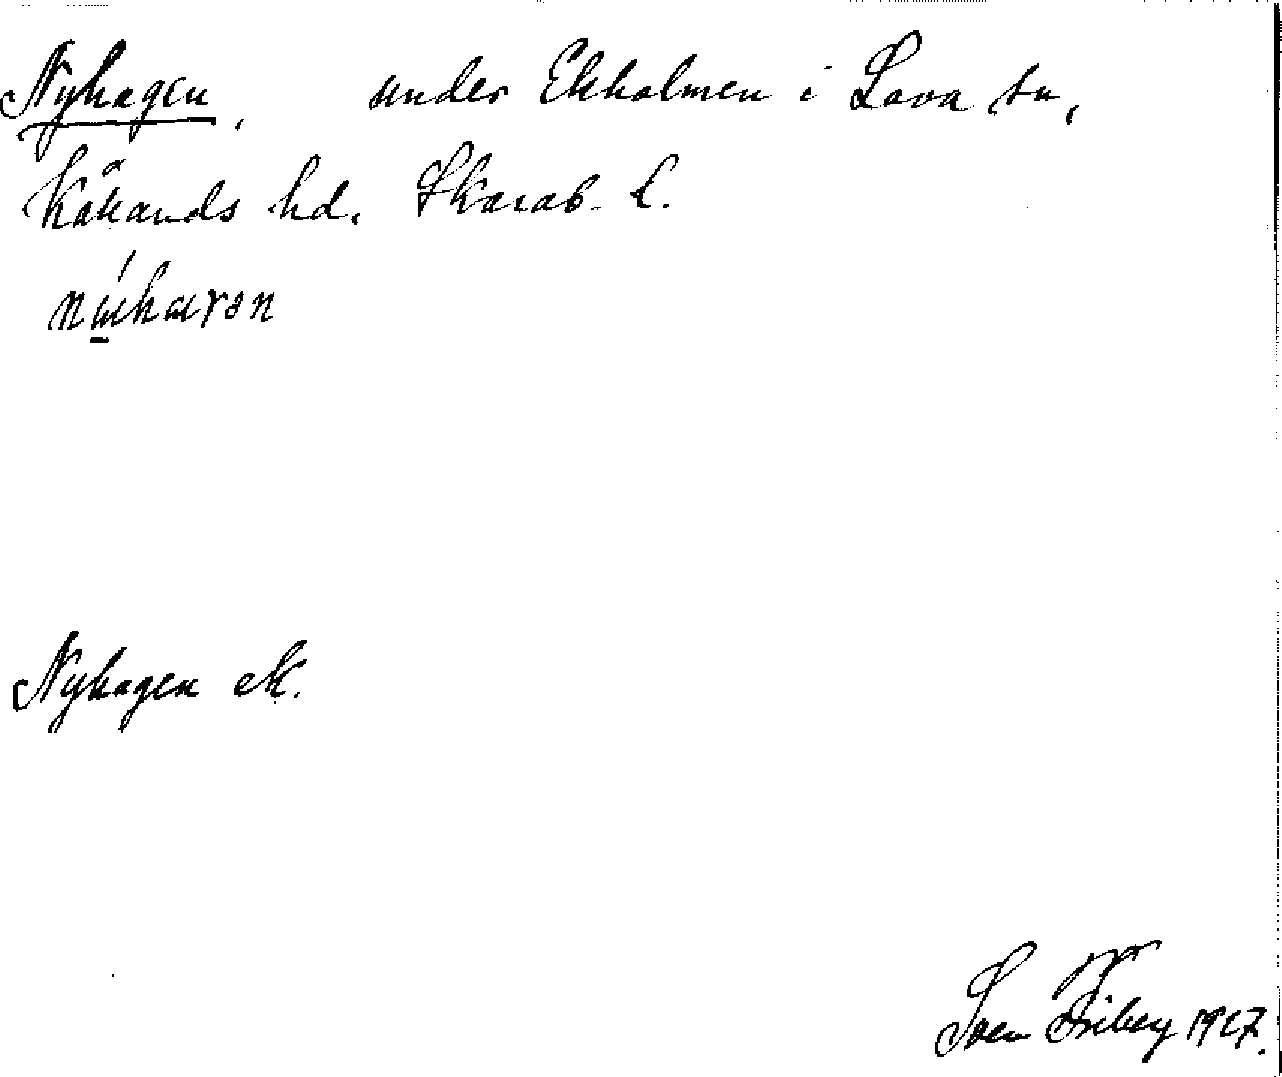 Nyhagen, under Ekholmen i Lava sn,
Kåkands hd. Skarab. l.
Nyhagen ek.
Sven Friberg 1927.